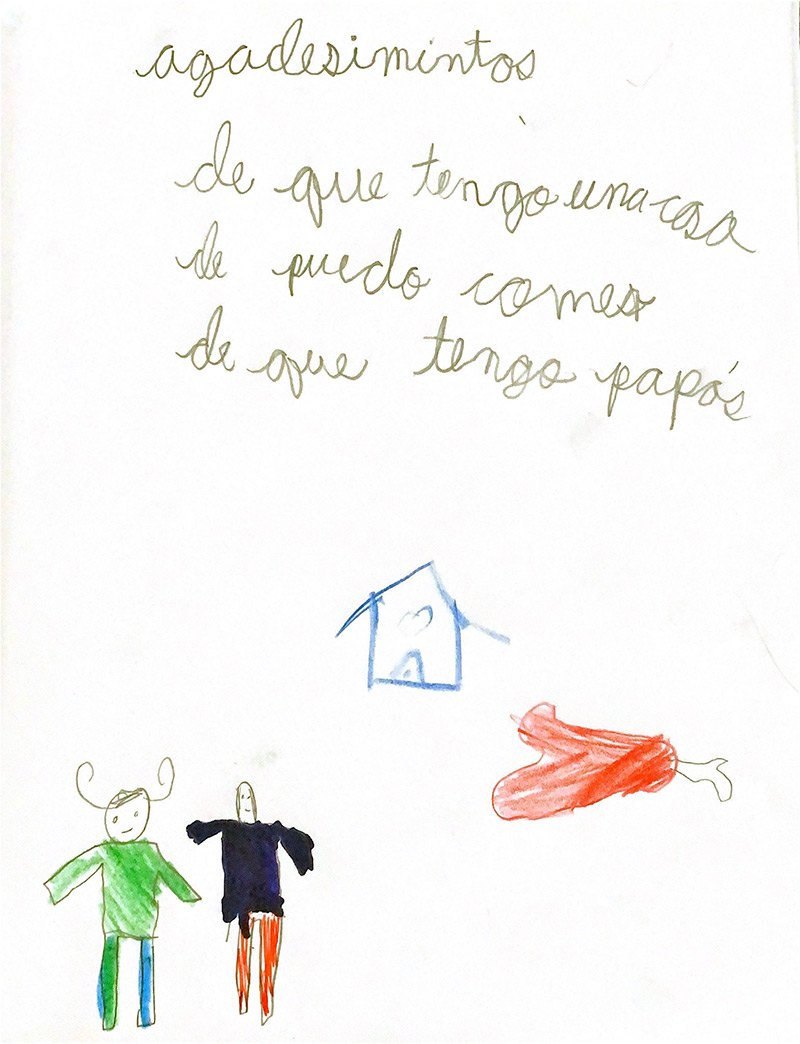 agadesimintos
de que tengo una casa
de puedo comer
de que tengo papás